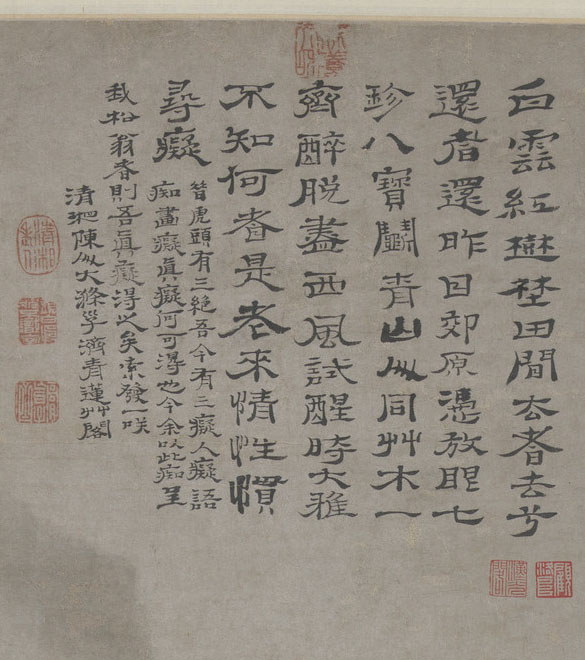 白雲紅樹埜田間去者去兮
還者還昨日郊原憑放眼七
珍八寶鬭青山似同艸木一
齊醉脫盡西風試醒時大雅
不知何者是老來情性慣
尋癡
昔虎頭有三絕吾今有三癡人癡語
痴畫癡真癡何可得也今余以此痴呈
我松翁者則吾真癡得之矣索發一咲
清湘陳人大滌子濟青蓮艸閣